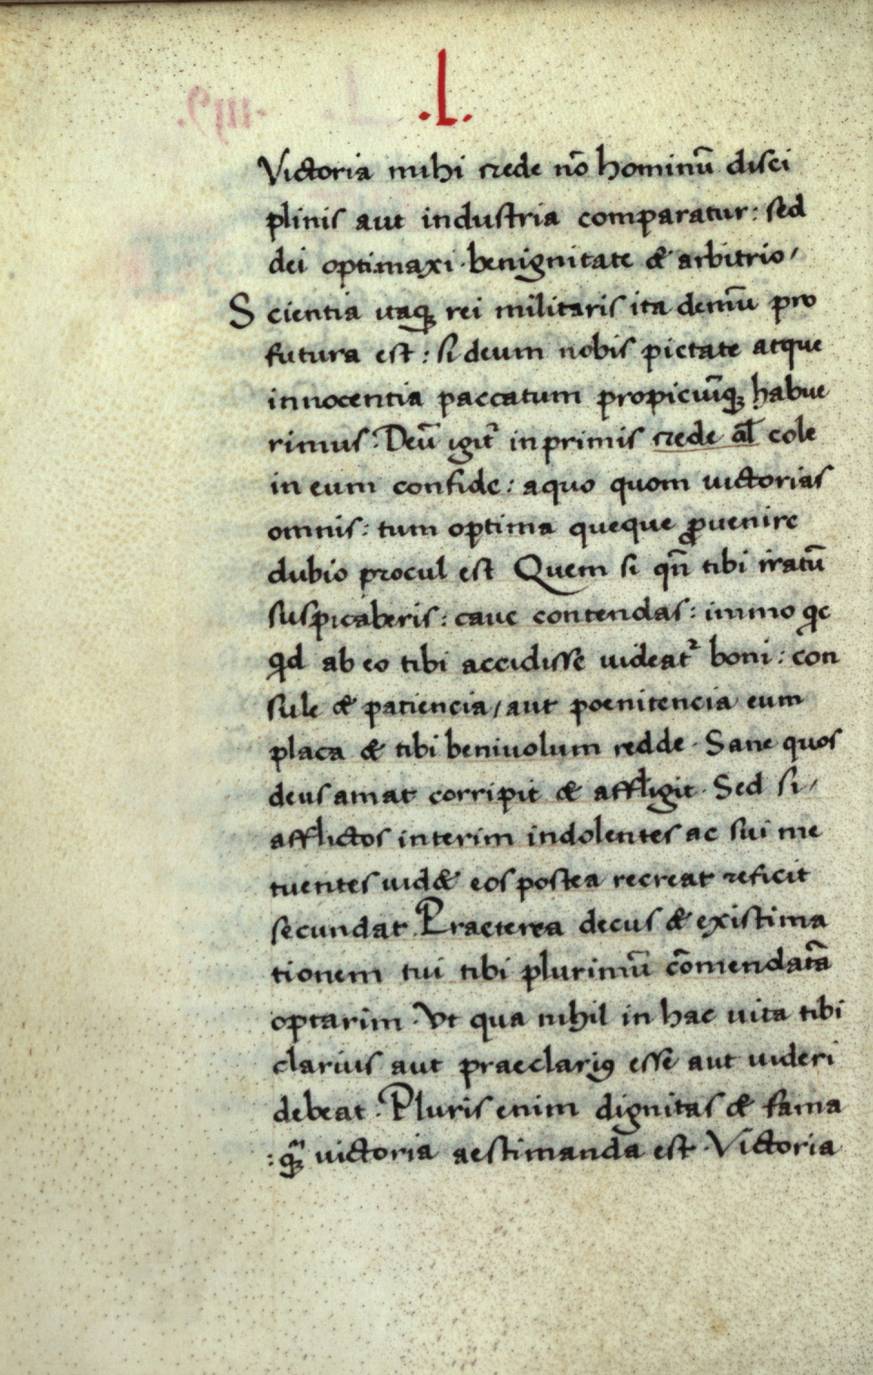 .L.
Victoria mihi crede nō hominū disci
plinis aut industria comparatur: sed
dei optimaxi benignitate & arbitrio/
Scientia itaq; rei militaris ita demū pro
futura est: si deum nobis pietate atque
innocentia paccatum propiciūq; habue
rimus. Deū igit᷑ inprimis crede al̄ cole
in eum confide: aquo quom uictorias
omnis: tum optima queque ꝓuenire
dubio procul est Quem si qn̄ tibi iratū
suspicaberis: caue contendas: immo
ꝗd ab eo tibi accidisse uideat᷑ boni: con
sule & paciencia/aut poenitencia eum
placa & tibi beniuolum redde. Sane quos
deus amat corripit & affligit. Sed si/
afflictos interim indolentes ac sui me
tuentes uid& eos postea recreat reficit
secundat. Praeterea decus & existima
tionem tui tibi plurimū cōmendatā
optarim. Vt qua nihil in hac uita tibi
clarius aut praeclariꝯ esse aut uideri
debeat. Pluris enim dignitas & fama
:ꝙ̄ uictoria aestimanda est. Victoria